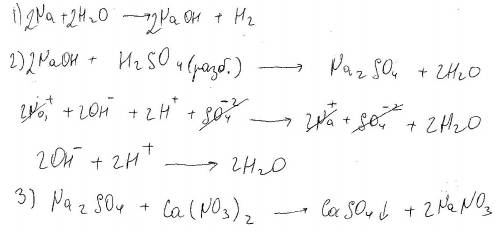 1) 2Na + 2H2O ⟶ 2NaOH + H2
2) 2NaOH + H2SO4 (разб.) ⟶ Na2SO4 + 2H2O
2Na⁺ + 2OH⁻ + 2H⁺ + SO4⁻² ⟶ 2Na⁺ + SO4⁻² + 2H2O
2OH⁻ + 2H⁺ ⟶ 2H2O
3) Na2SO4 + Ca(NO3)2 ⟶ CaSO4↓ + 2NaNO3